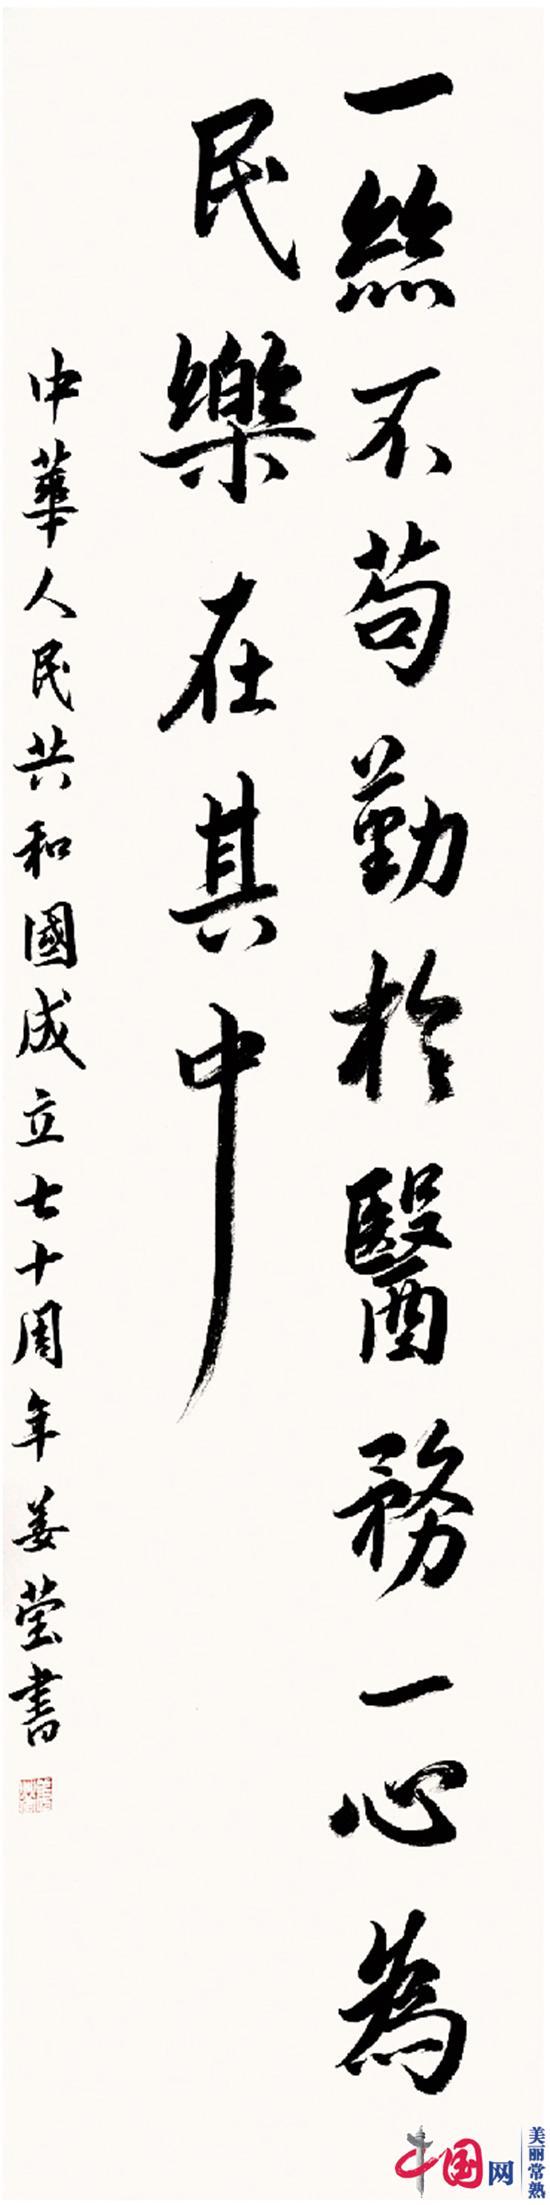 一絲不苟勤於醫務一心為
民樂在其中
中華人民共和國成立七十周年姜莹書
中国网
美丽常熟